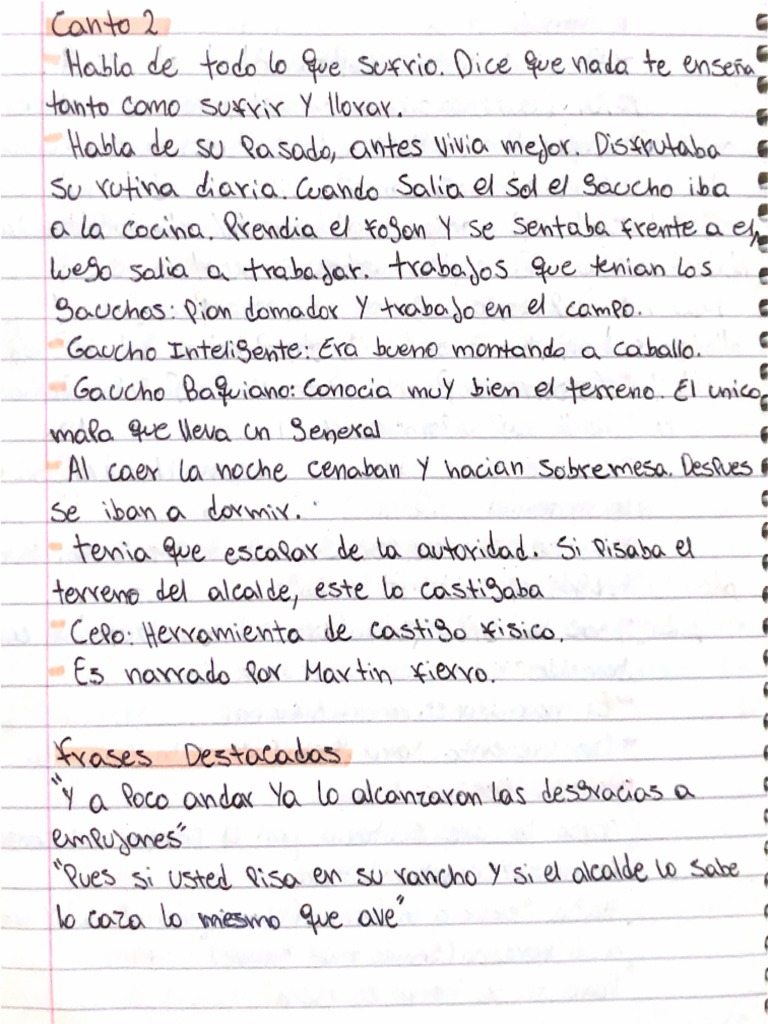 Canto 2
- Habla de todo lo que sufrio. Dice que nada te enseña
tanto como sufrir y llorar.
- Habla de su pasado, antes vivia mejor. Disfrutaba
su rutina diaria. Cuando salia el sol el gaucho iba
a la cocina. Prendia el fogon y se sentaba frente a el,
luego salia a trabajar. trabajos que tenian los
gauchos: pion domador y trabajo en el campo.
- Gaucho Inteligente: Era bueno montando a caballo.
- Gaucho Baquiano: Conocia muy bien el terreno. El unico
mapa que lleva un general
- Al caer la noche cenaban y hacian sobremesa. Despues
se iban a dormir.
- tenia que escapar de la autoridad. Si pisaba el
terreno del alcalde, este lo castigaba
- Cepo: Herramienta de castigo fisico.
- Es narrado por Martin fierro.
frases Destacadas
"Y a poco andar ya lo alcanzaron las desgracias a
empujones"
"Pues si usted pisa en su rancho y si el alcalde lo sabe
lo caza lo mesmo que ave"